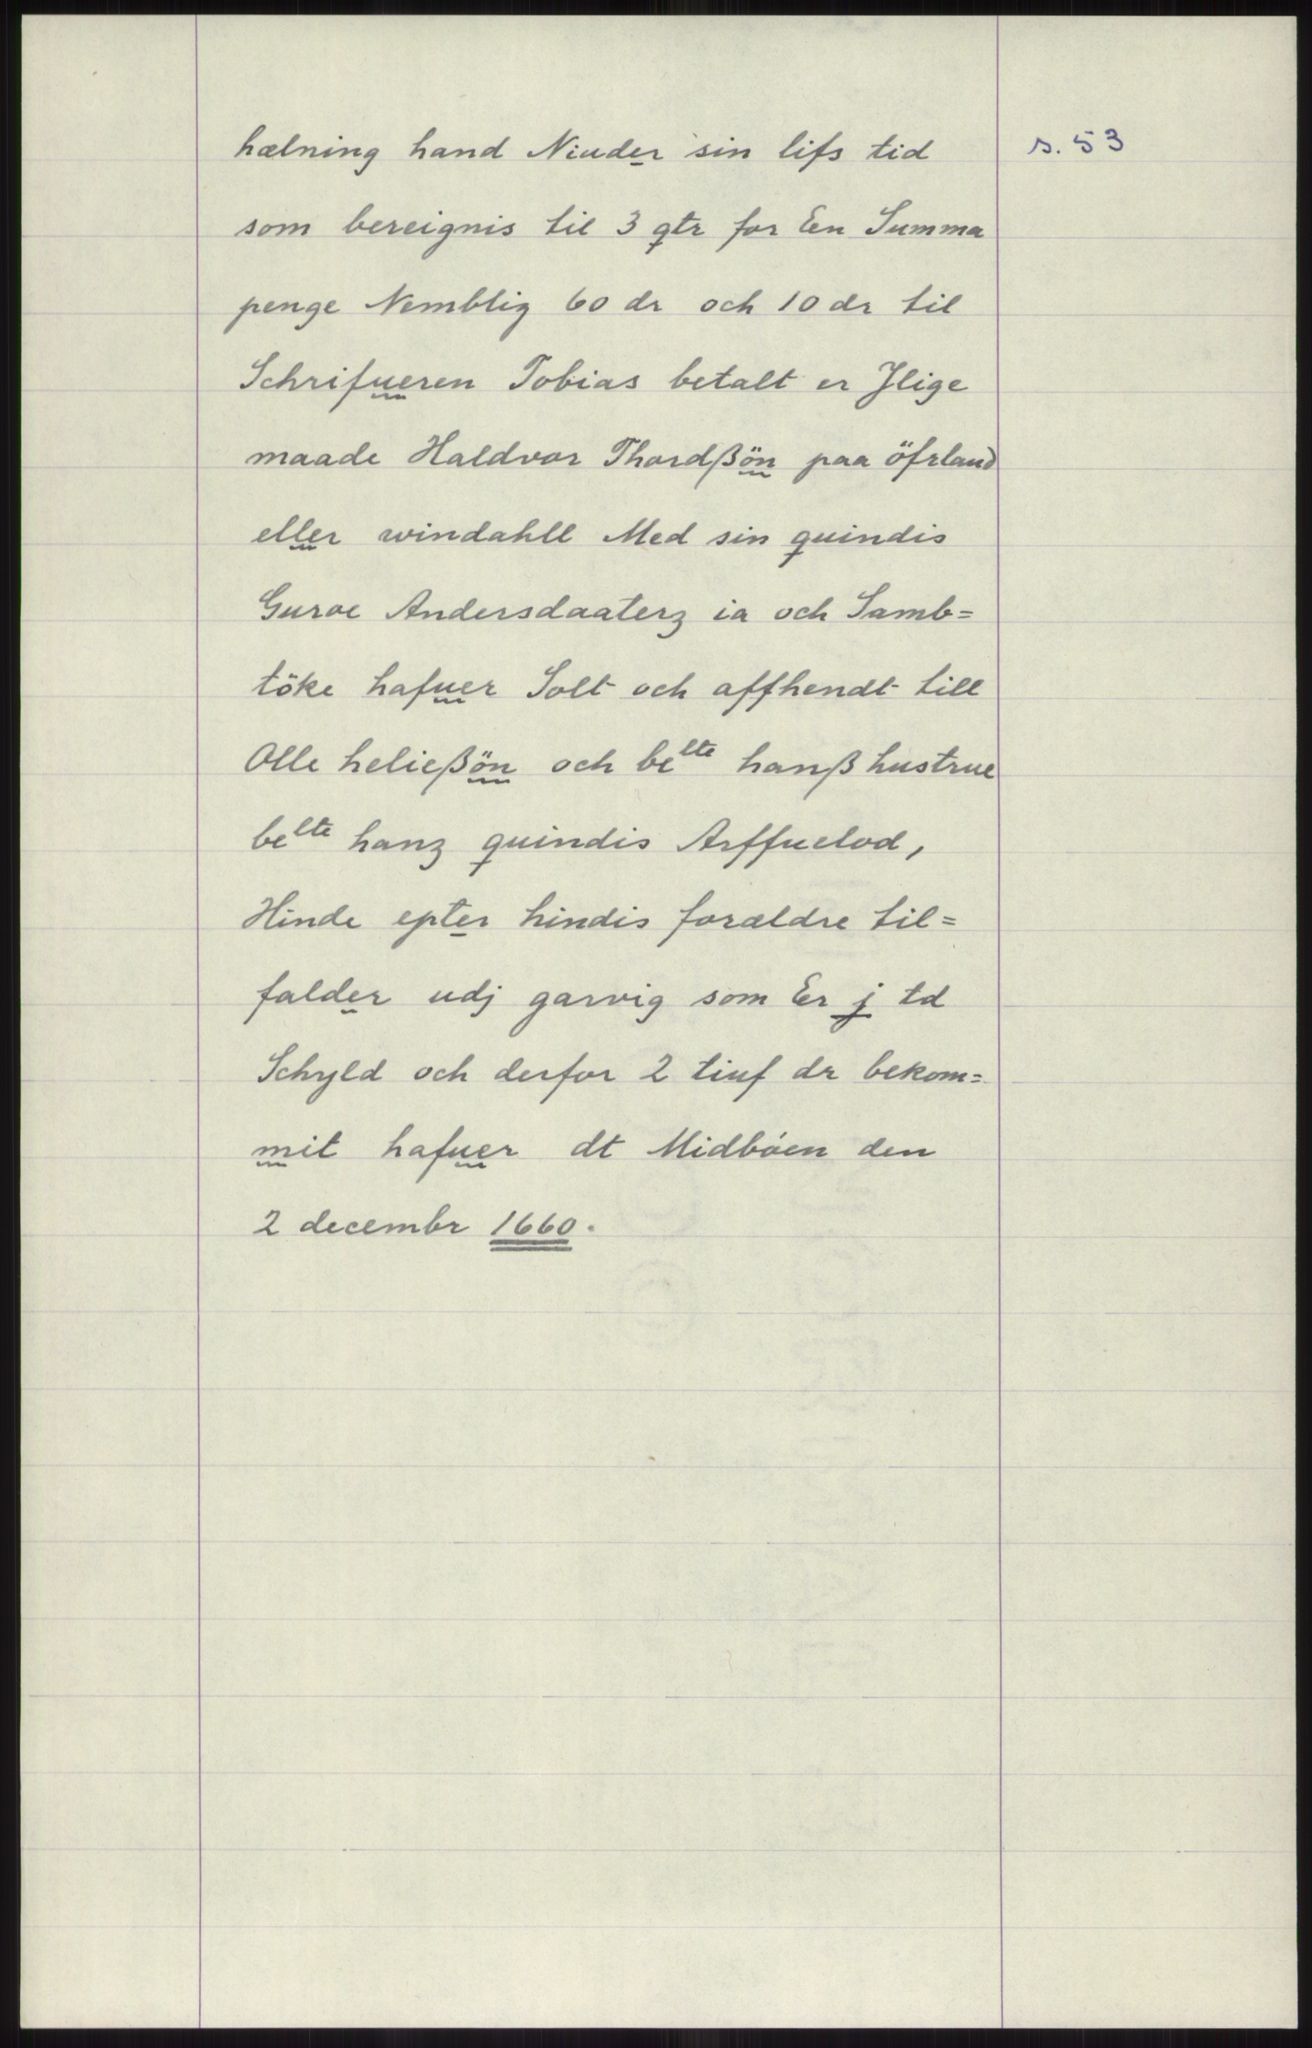 hælning hand Niuder sin lifs tid
s. 53
som bereignis til 3 qtr for Een Summa
penge Nemblig 60 dr och 10 dr til
Schrifueren Tobias betalt er Jlige
maade Haldvor Thordßön paa öfrland
eller windahll Med sin quindis
Guroe Andersdaaterz ia och Samb=
töke hafuer Solt och affhendt till
Olle heließön och belte hanß hustrue
belte hanz quindis Arffuelod,
Hinde epter hindis forældre til=
falder udj garvig som Er j td
Schyld och derfor 2 tiuf dr bekom=
mit hafuer dt Midböen den
2 decembr 1660.